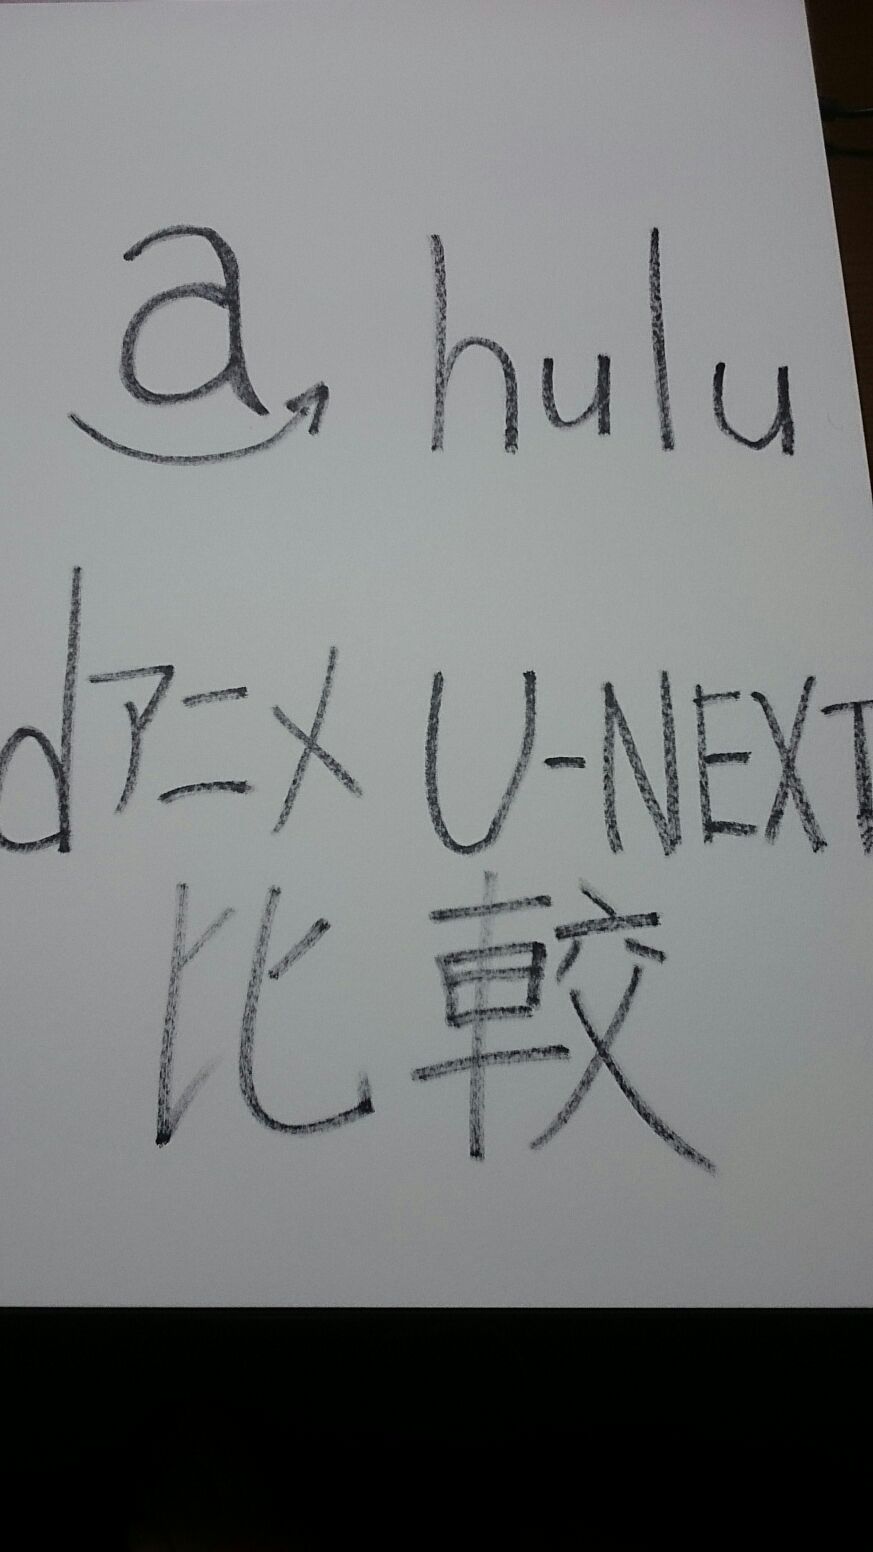 a hulu
dアニメ U-NEXT
比較